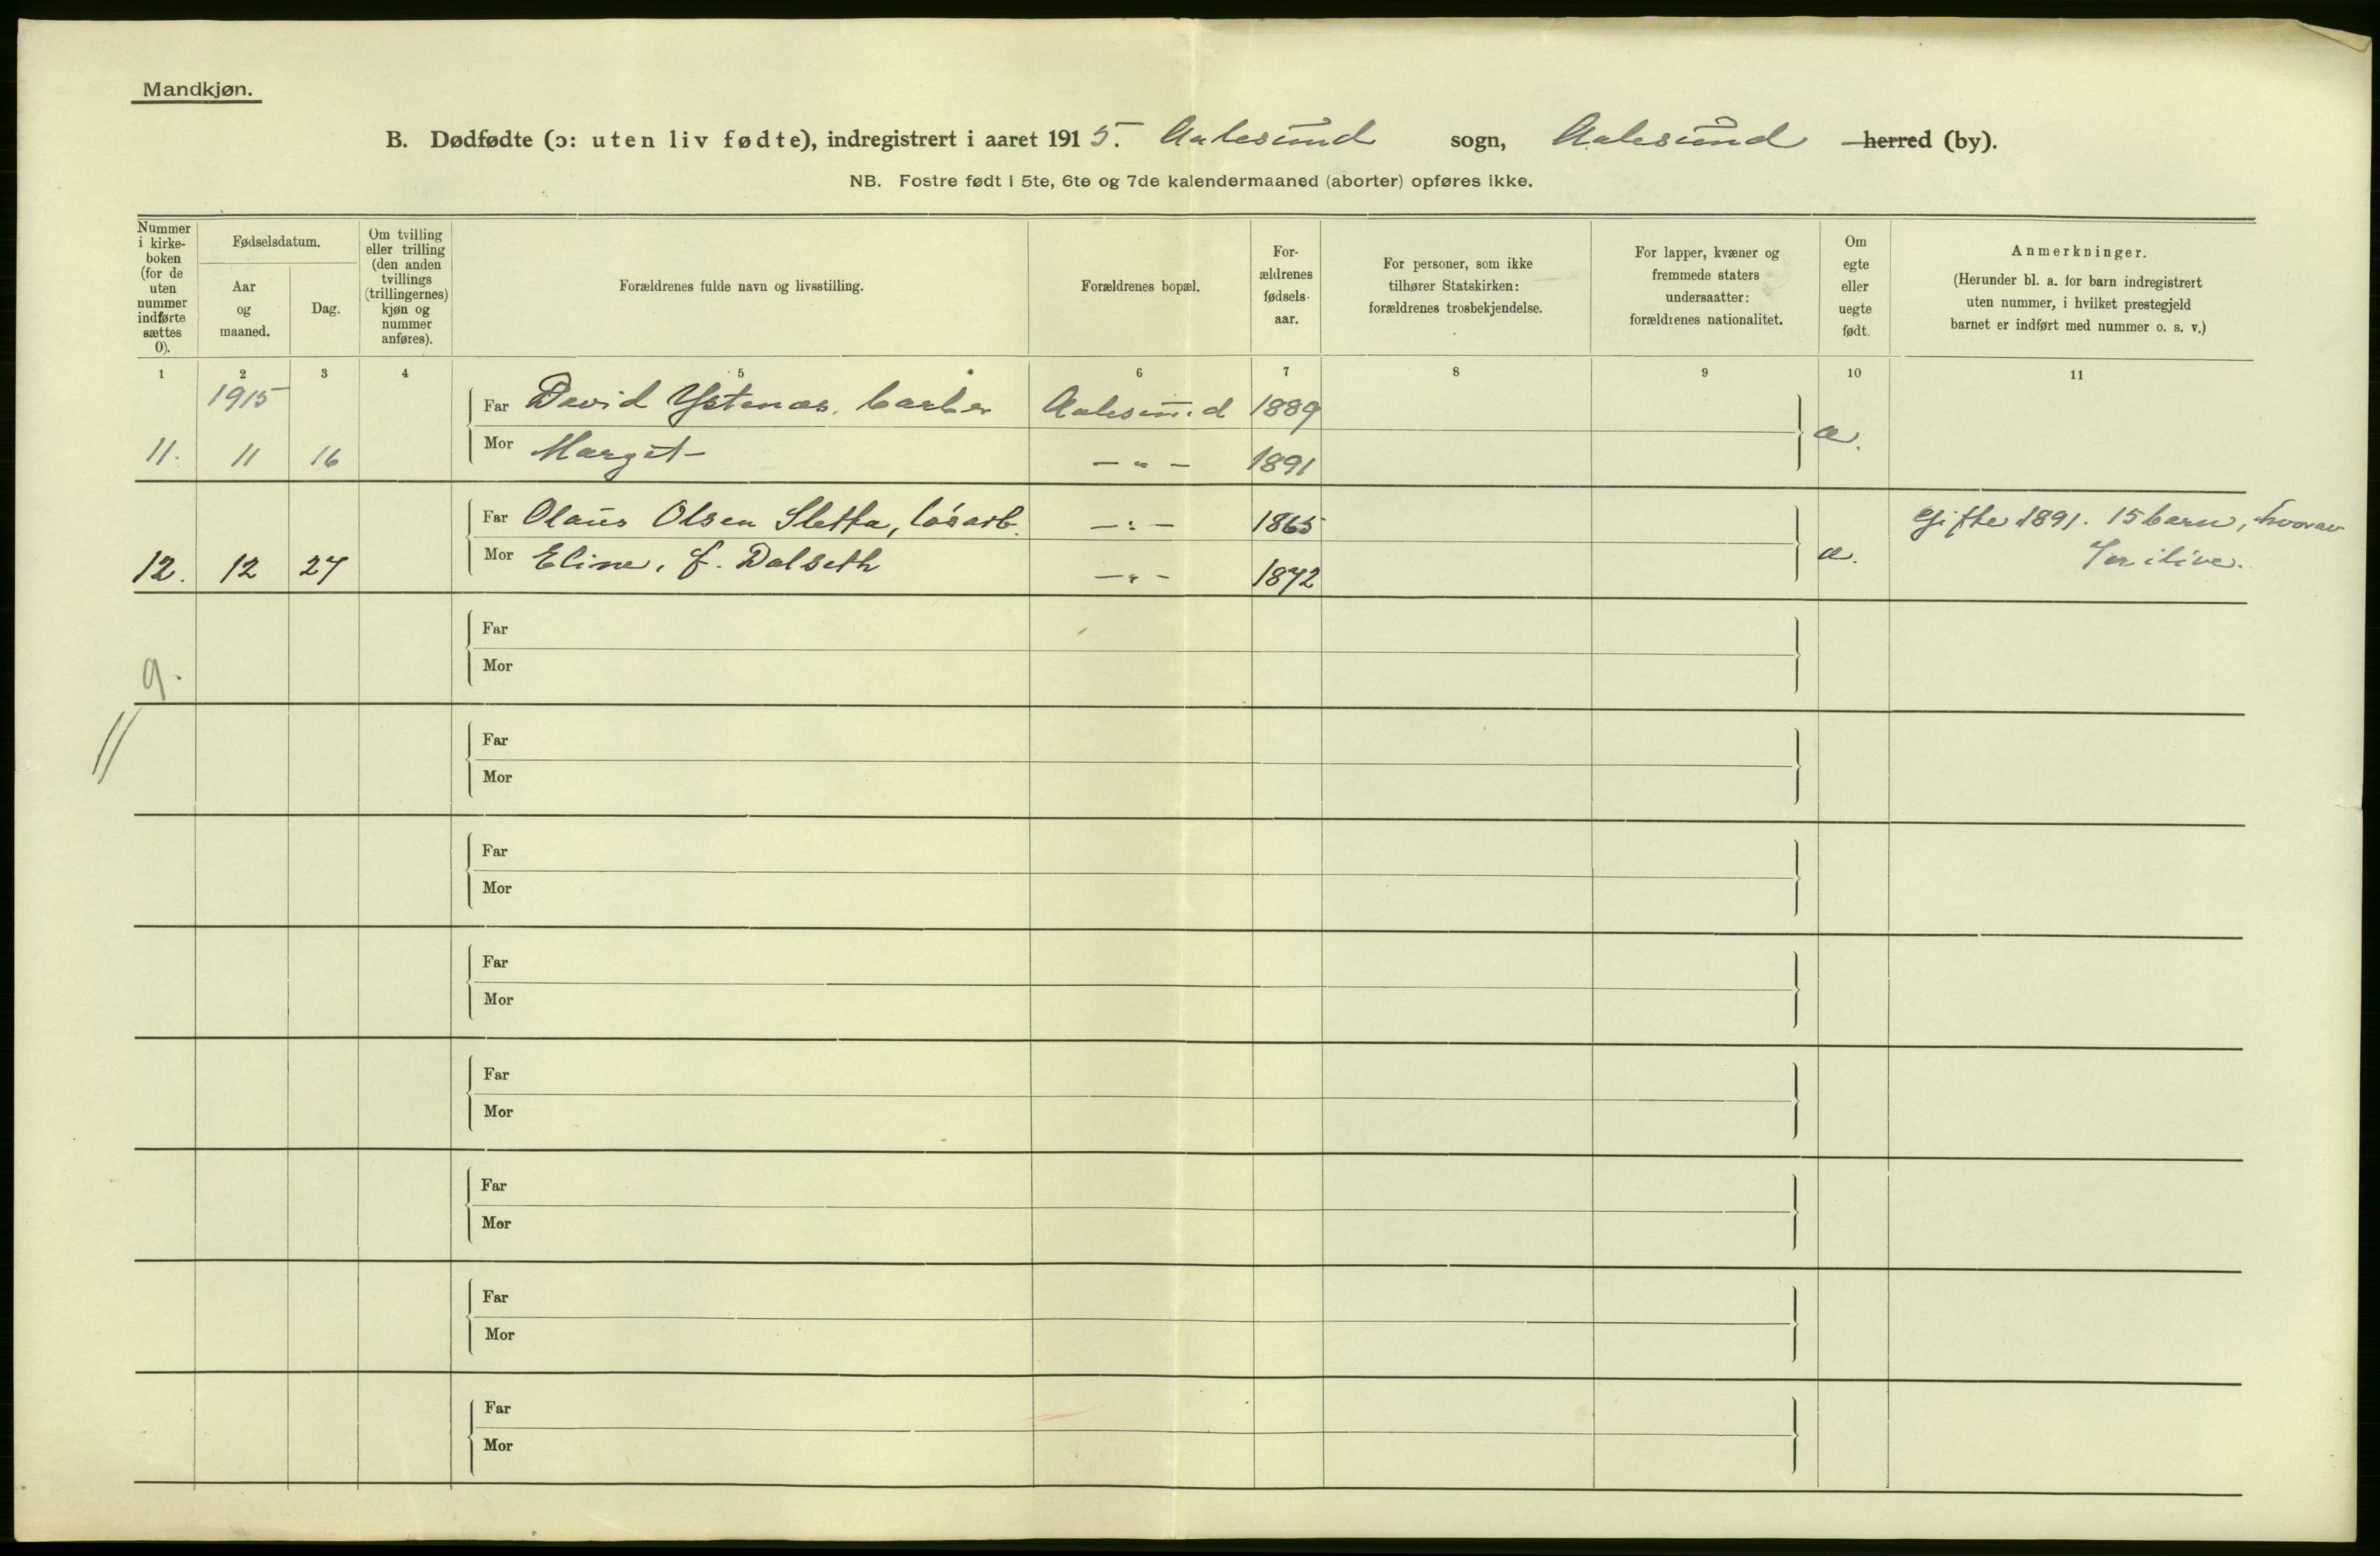 Mandkjøn.
B. Dødfødte (ɔ: uten liv fødte), indregistrert i aaret 1915. Aalesund sogn, Aalesund herred (by).
NB. Fostre født i 5te, 6te og 7de kalendermaaned (aborter) opføres ikke.
Nummer i kirke-boken (for de uten nummer indførte sættes 0).
Fødselsdatum.
Aar og maaned.
Dag.
Om tvilling eller trilling (den anden tvillings (trillingernes) kjøn og nummer anføres).
Forældrenes fulde navn og livsstilling.
Forældrenes bopæl.
For-ældrenes fødsels-aar.
For personer, som ikke tilhører Statskirken: forældrenes trosbekjendelse.
For lapper, kvæner og fremmede staters undersaatter: forældrenes nationalitet.
Om egte eller uegte født.
Anmerkninger.
(Herunder bl. a. for barn indregistrert uten nummer, i hvilket prestegjeld barnet er indført med nummer o. s. v.)
1 2 3 4 5 6 7 8 9 10 11
1915
Far David Ystenæs, barber Aalesund 1889
11. 11 16 Mor Margit — " — 1891 æ.
Far Olaus Olsen Sletta, løsarb. — " — 1865 Gifte 1891. 15 barn, hvorav
12. 12 27 Mor Eline, f. Dalseth — " — 1872 æ. ilive.
Far
9. Mor
Far
Mor
Far
Mor
Far
Mor
Far
Mor
Far
Mor
Far
Mor
Far
Mor